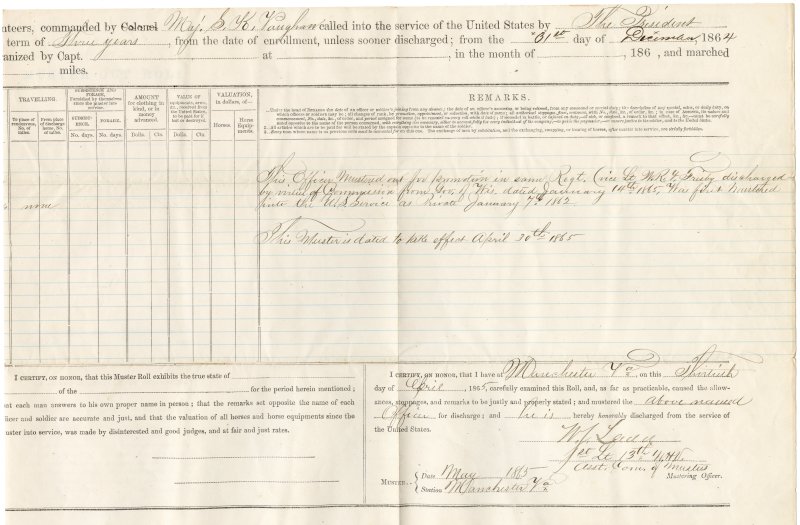 nteers, commanded by Colonel Maj. S. K. Vaughan called into the service of the United States by The President
term of Three years, from the date of enrollment, unless sooner discharged; from the 31st day of December, 1864
anized by Capt. at , in the month of , 186 , and marched
miles.
TRAVELLING.
To place of rendezvous, No. of miles.
From place of discharge home, No. of miles.
SUBSISTENCE AND FORAGE,
Furnished by themselves from the muster into service.
SUBSIST-ENCE.
FORAGE.
No. days.
No. days.
AMOUNT
for clothing in kind, or in money advanced.
Dolls.
Cts.
VALUE OF
Dolls.
Cts.
VALUATION,
in dollars, of—
Horses.
Horse Equip-ments.
REMARKS.
none
This Officer Mustered out for promotion in same Regt. (vice Lt. W. R. discharged
by virtue of Commission from Gov. of Wis. dated January 14th 1865, Was first Mustered
into the U.S. Service as Private January 7th 1862
This Muster is dated to take effect April 30th 1865
I CERTIFY, ON HONOR, that this Muster Roll exhibits the true state of
of the for the period herein mentioned;
at each man answers to his own proper name in person; that the remarks set opposite the name of each
icer and soldier are accurate and just, and that the valuation of all horses and horse equipments since the
uster into service, was made by disinterested and good judges, and at fair and just rates.
I CERTIFY, ON HONOR, that I have at Manchester Va. on this Thirtieth
day of April, 1865, carefully examined this Roll, and, as far as practicable, caused the allow-
ances, stoppages, and remarks to be justly and properly stated; and mustered the above named
Officer for discharge; and he is hereby honorably discharged from the service of
the United States.
W. J. Ladd
1st Lt 13th N.H.V.
Asst. Com. of Musters
Mustering Officer.
MUSTER
Date May 1865
Station Manchester Va.